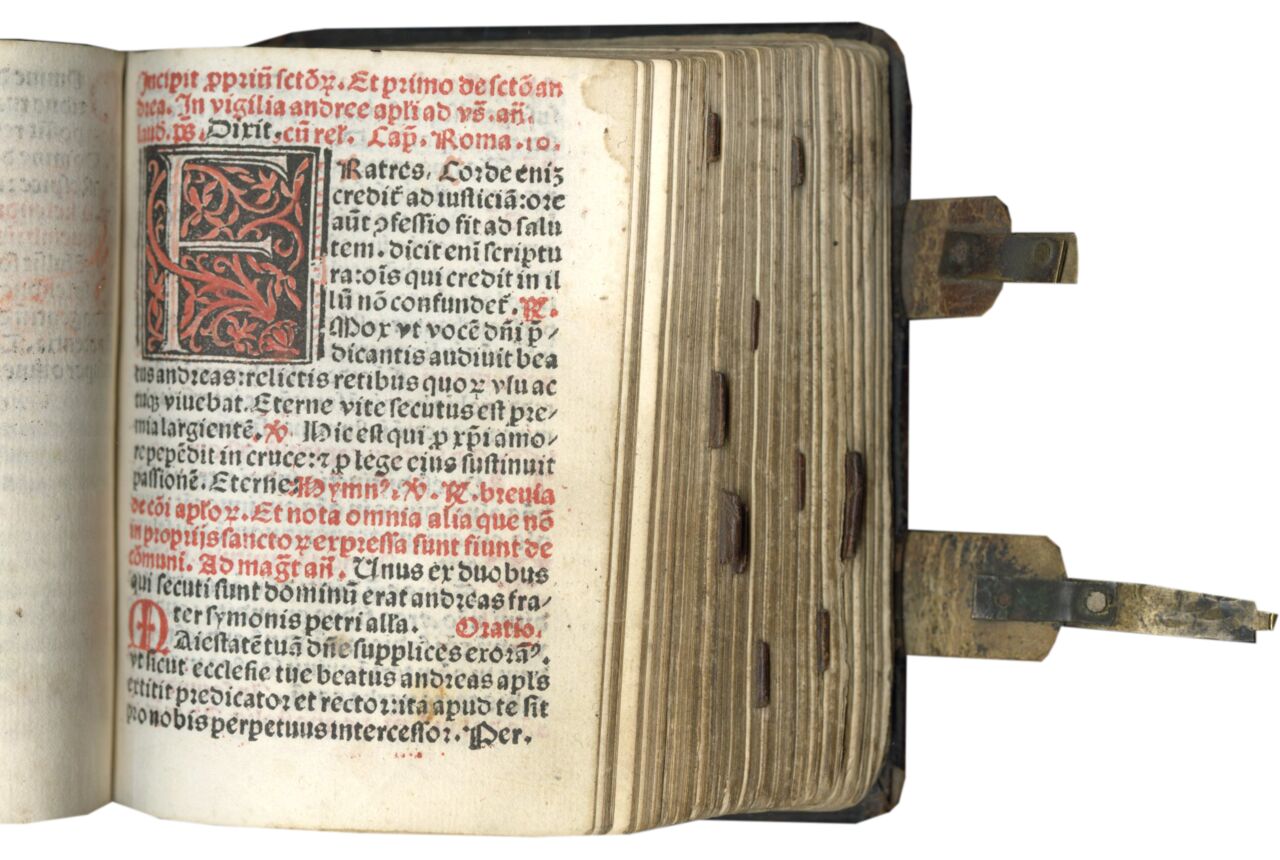 Incipit ꝓpriū sctōꝝ. Et primo de sctō an
drea. In vigilia andree apli ad vs̄. añ.
laud. p̄s. Dixit, cū rel. Cap̄. Roma .10.
FRatres, Corde eniꝫ
credit̄ ad iusticiā: ore
aūt ꝯfessio fit ad salu
tem. dicit eni scriptu
ra: oīs qui credit in il
lū nō confundet̄. ℟.
Mox vt vocē dn̄i p̄-
dicantis audiuit bea
tus andreas: relictis retibus quoꝝ vsu ac
tuqꝫ viuebat. Eterne vite secutus est pre-
mia largientē. ℣ Hic est qui ꝓ xp̄i amo-
re pepēdit in cruce: ⁊ ꝓ lege eius sustinuit
passionē. Eterne. Hymnꝰ. ℣. ℟. breuia
de cōi aploꝝ. Et nota omnia alia que nō
in proprijs sanctoꝝ expressa sunt fiunt de
cōmuni. Ad maḡt añ. Unus ex duobus
qui secuti sunt dominū erat andreas fra-
ter symonis petri alla. Oratio.
MAiestatē tuā dn̄e supplices exoramꝰ.
vt sicut ecclesie tue beatus andreas apls
extitit predicator et rector: ita apud te sit
pro nobis perpetuus intercessor. Per.